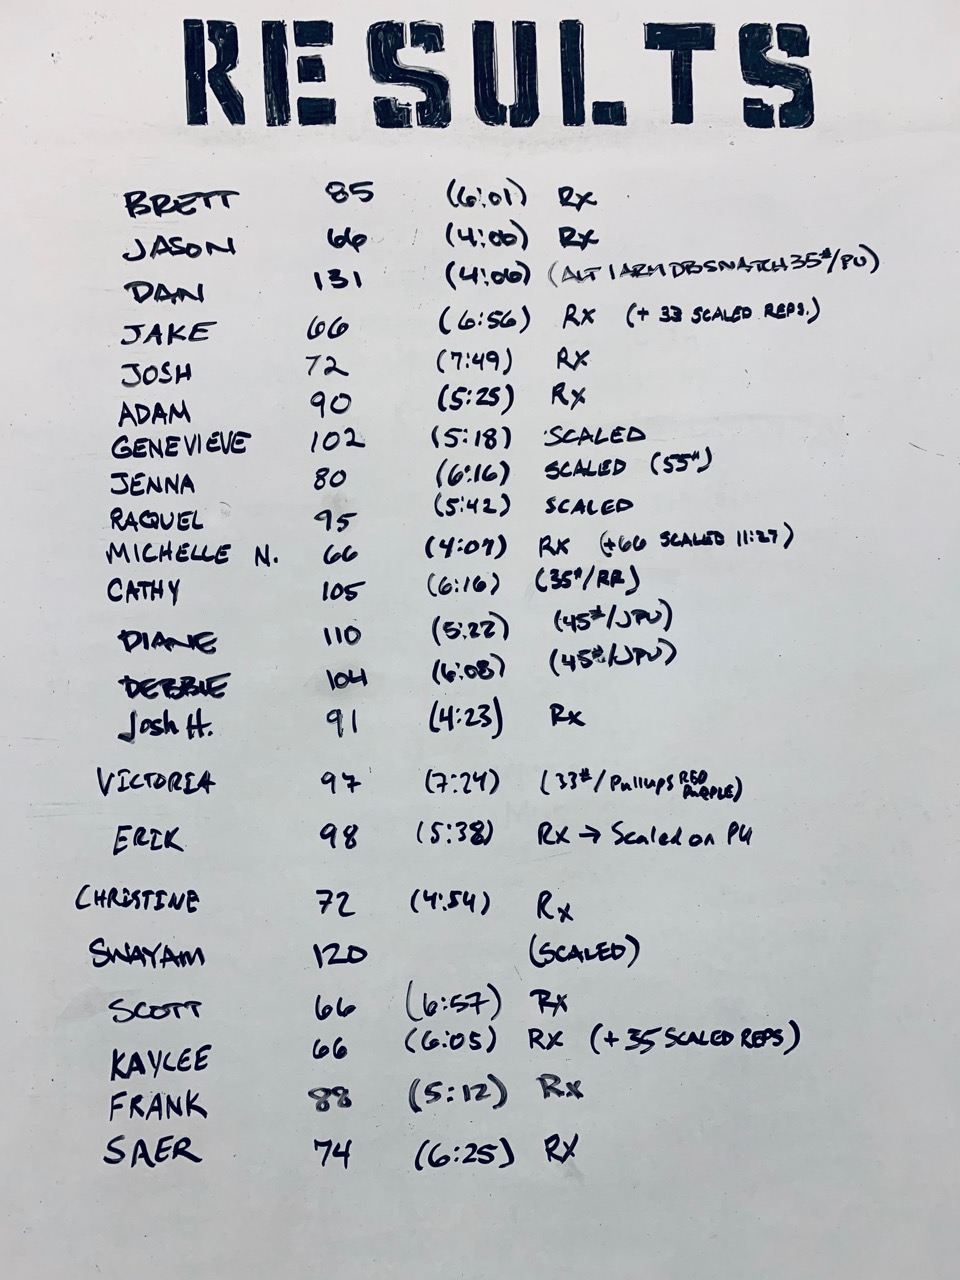 RESULTS
BRETT 85 (6:01) Rx
JASON 66 (4:06) Rx
DAN 131 (4:06) (ALT 1 ARM DB SNATCH 35#/PU)
JAKE 66 (6:56) Rx (+ 33 SCALED REPS.)
JOSH 72 (7:49) Rx
ADAM 90 (5:25) Rx
GENEVIEVE 102 (5:18) SCALED
JENNA 80 (6:16) SCALED (55#)
RAQUEL 95 (5:42) SCALED
MICHELLE N. 66 (4:07) Rx (+66 SCALED 11:27)
CATHY 105 (6:16) (35#/RR)
DIANE 110 (5:22) (45#/JPU)
DEBBIE 104 (6:08) (45#/JPU)
Josh H. 91 (4:23) Rx
VICTORIA 97 (7:24) (33#/Pullups RED PURPLE)
ERIK 98 (5:38) Rx → Scaled on PU
CHRISTINE 72 (4:54) Rx
SWAYAM 120 (SCALED)
SCOTT 66 (6:57) Rx
KAYLEE 66 (6:05) Rx (+ 35 SCALED REPS)
FRANK 88 (5:12) Rx
SAER 74 (6:25) Rx